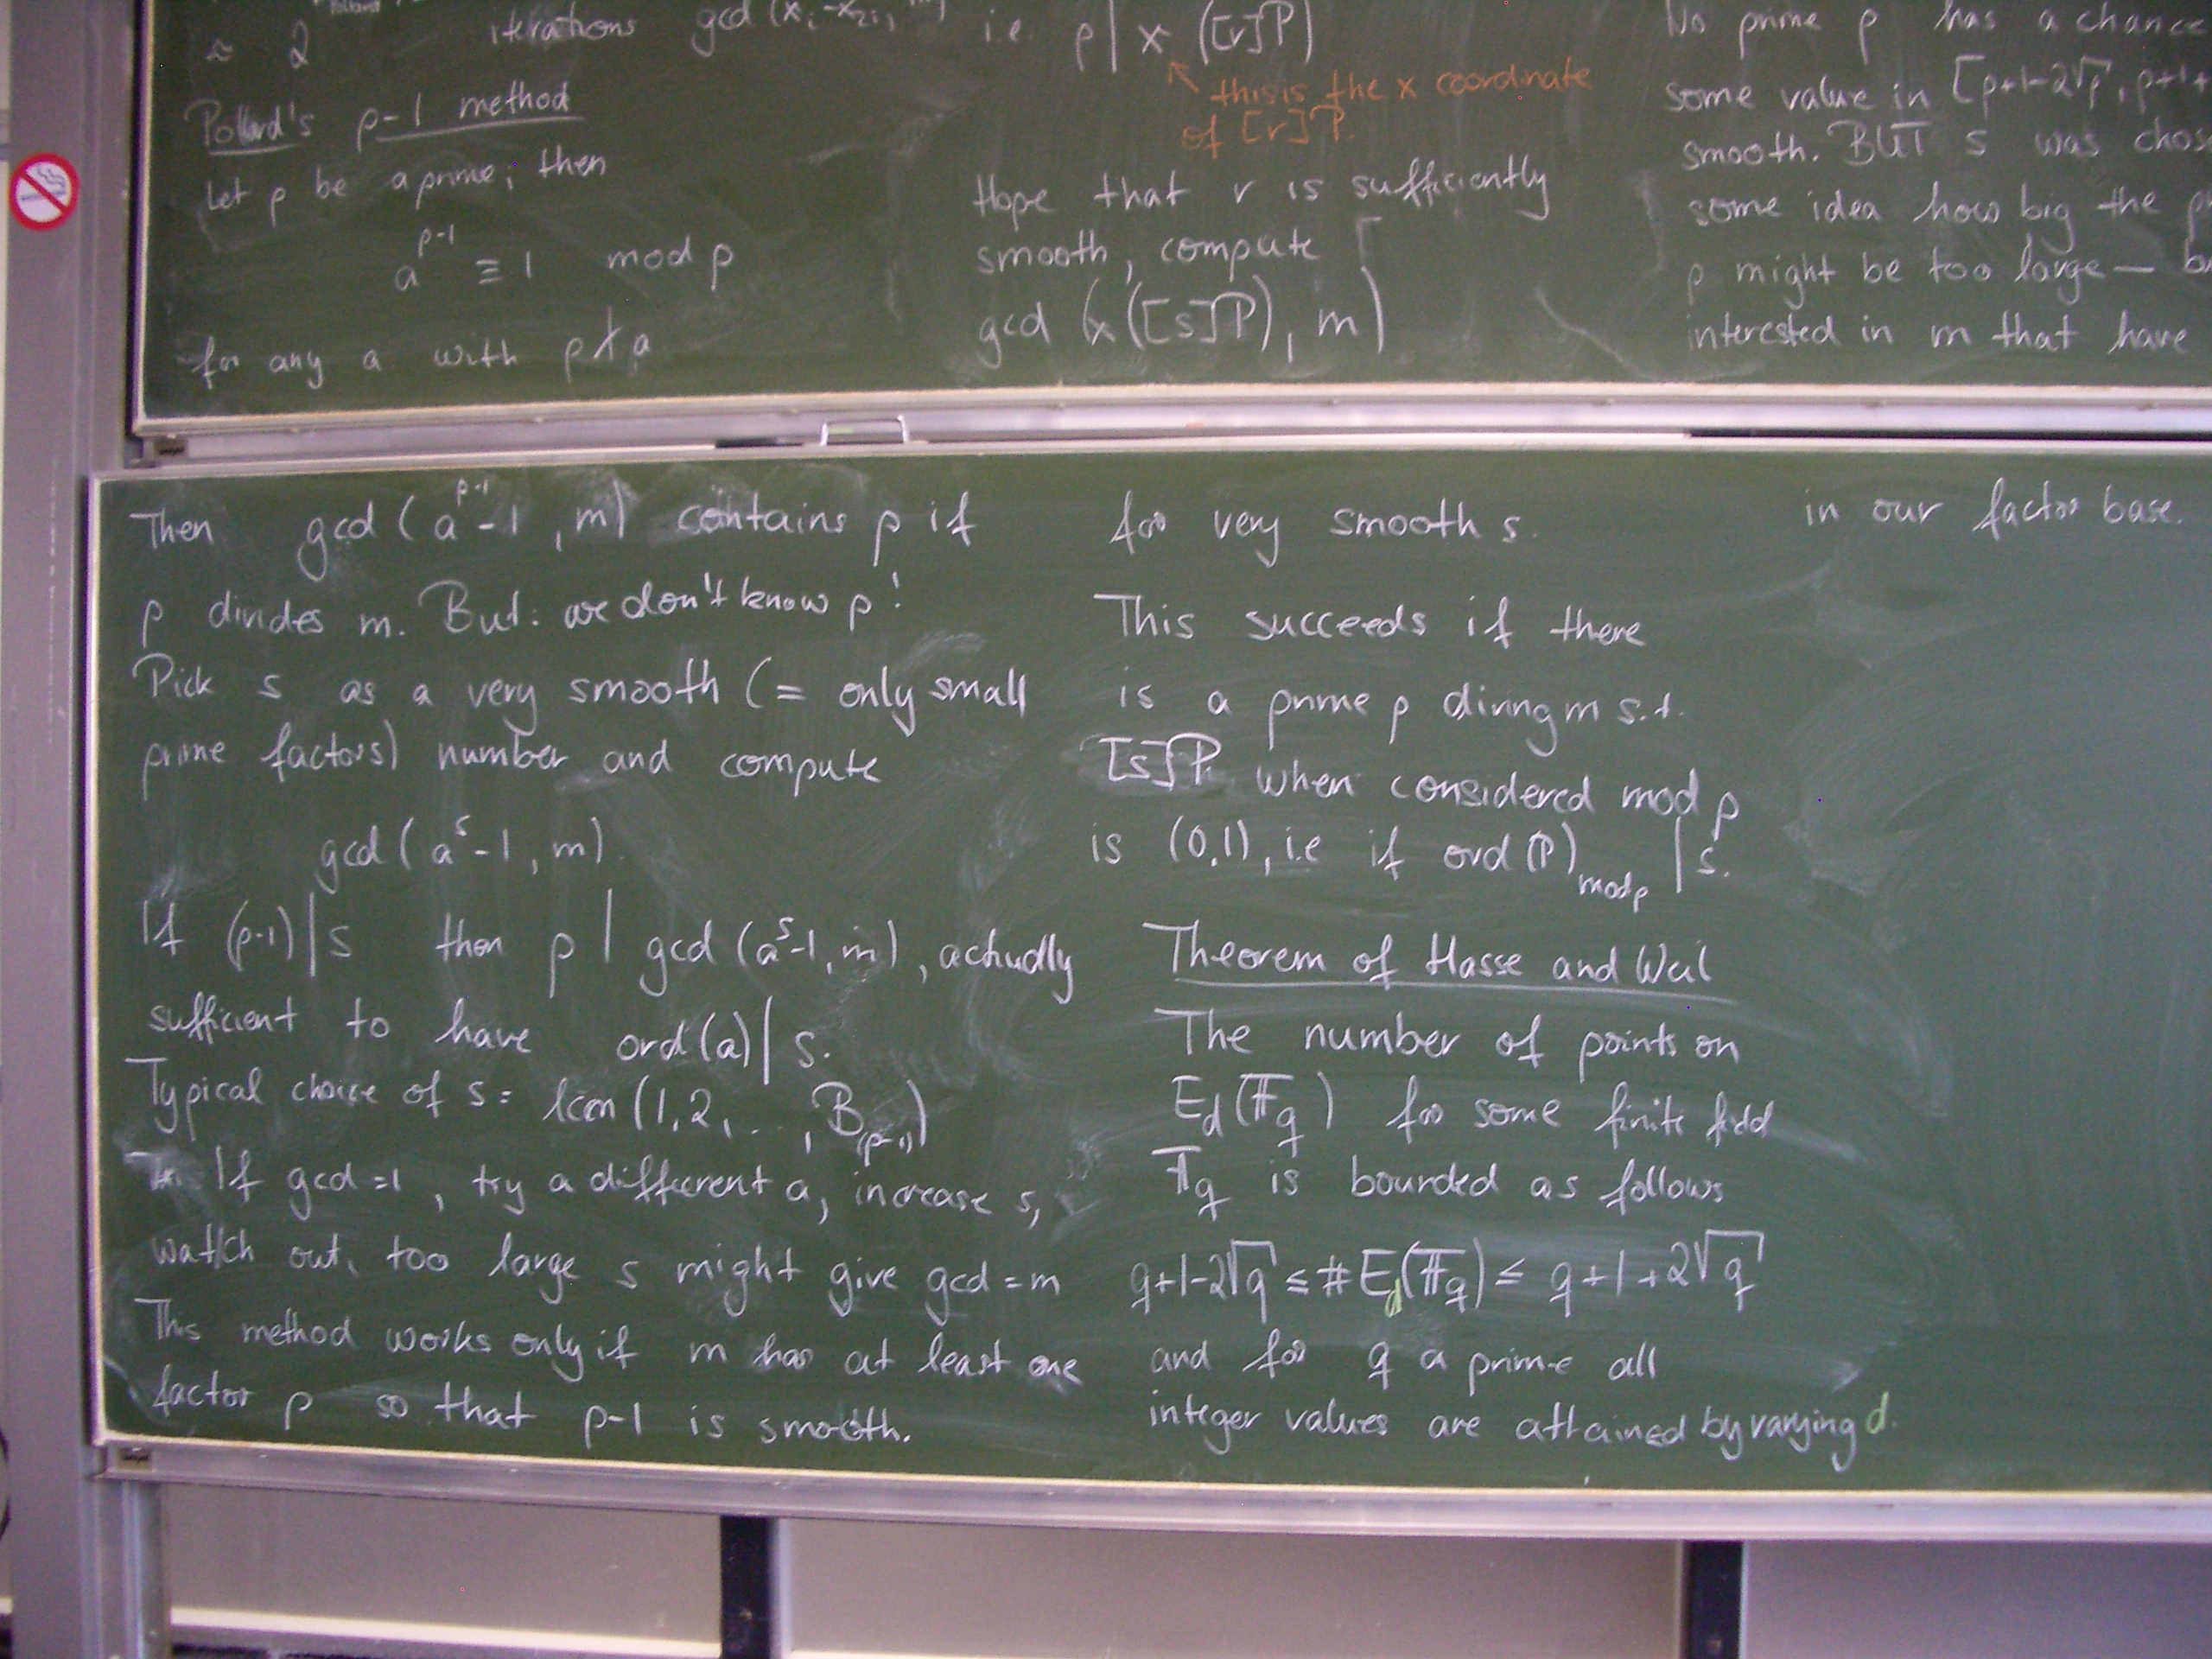 ≈ 2 iterations gcd (x_i - x_{2i},
Pollard's p-1 method
Let p be a prime; then
a^{p-1} ≡ 1 mod p
for any a with p ∤ a
i.e. p | x ([r]P)
↖ this is the x coordinate
of [r]P.
Hope that r is sufficiently
smooth, compute
gcd (x([s]P), m)
No prime p has a chance
some value in [p+1-2√p, p+1+
smooth. BUT s was chos
some idea how big the p
p might be too large —
interested in m that have
Then gcd (a^{p-1} - 1, m) contains p if
p divides m. But: we don't know p!
Pick s as a very smooth (= only small
prime factors) number and compute
gcd (a^s - 1, m).
If (p-1) | s then p | gcd (a^s-1, m), actually
sufficient to have ord(a) | s.
Typical choice of s = lcm (1, 2, ..., B_{(p-1)})
If gcd = 1, try a different a, increase s,
watch out, too large s might give gcd = m
This method works only if m has at least one
factor p so that p-1 is smooth.
for very smooth s.
This succeeds if there
is a prime p diving m s.t.
[s]P when considered mod p
is (0,1), i.e if ord (P)_{mod p} | s.
Theorem of Hasse and Weil
The number of points on
E_d(𝔽_q) for some finite field
𝔽_q is bounded as follows
q+1-2√q ≤ # E_d(𝔽_q) ≤ q+1+2√q
and for q a prime all
integer values are attained by varying d.
in our factor base.